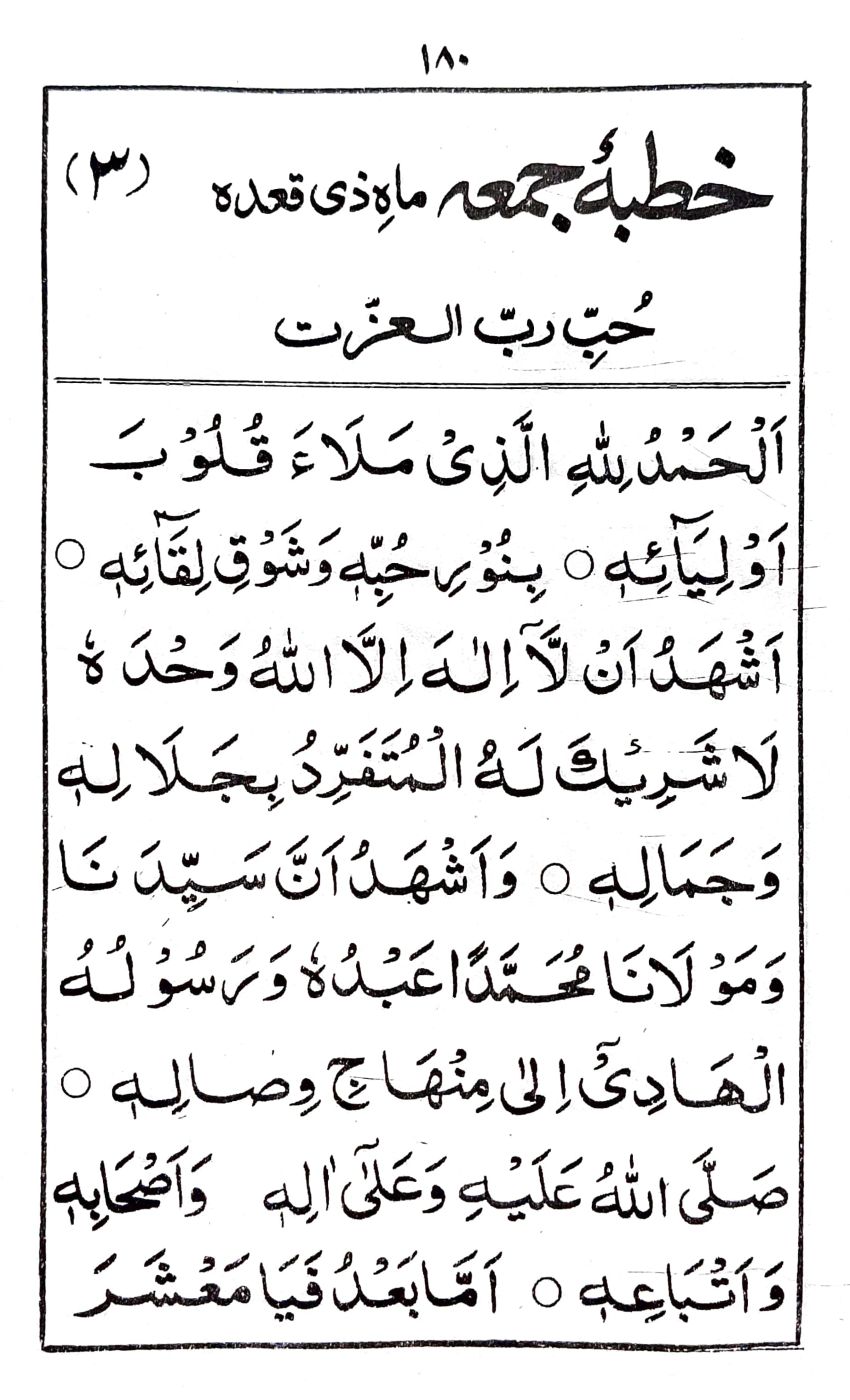 ١٨٠
خطبۂ جمعہ ماہِ ذی قعدہ (٣)
حُبِّ ربّ العزّت
اَلْحَمْدُ لِلّٰهِ الَّذِىْ مَلَاءَ قُلُوْبَ
اَوْلِيَآئِهٖ ○ بِنُوْرِ حُبِّهٖ وَشَوْقِ لِقَآئِهٖ ○
اَشْهَدُ اَنْ لَّآ اِلٰهَ اِلَّا اللّٰهُ وَحْدَهٗ
لَا شَرِيْكَ لَهُ الْمُتَفَرِّدُ بِجَلَالِهٖ
وَجَمَالِهٖ ○ وَاَشْهَدُ اَنَّ سَيِّدَنَا
وَمَوْلَانَا مُحَمَّدًا عَبْدُهٗ وَرَسُوْلُهُ
الْهَادِىْٓ اِلىٰ مِنْهَاجِ وِصَالِهٖ ○
صَلَّى اللّٰهُ عَلَيْهِ وَعَلىٰٓ اٰلِهٖ وَاَصْحَابِهٖ
وَاَتْبَاعِهٖ ○ اَمَّا بَعْدُ فَيَا مَعْشَرَ